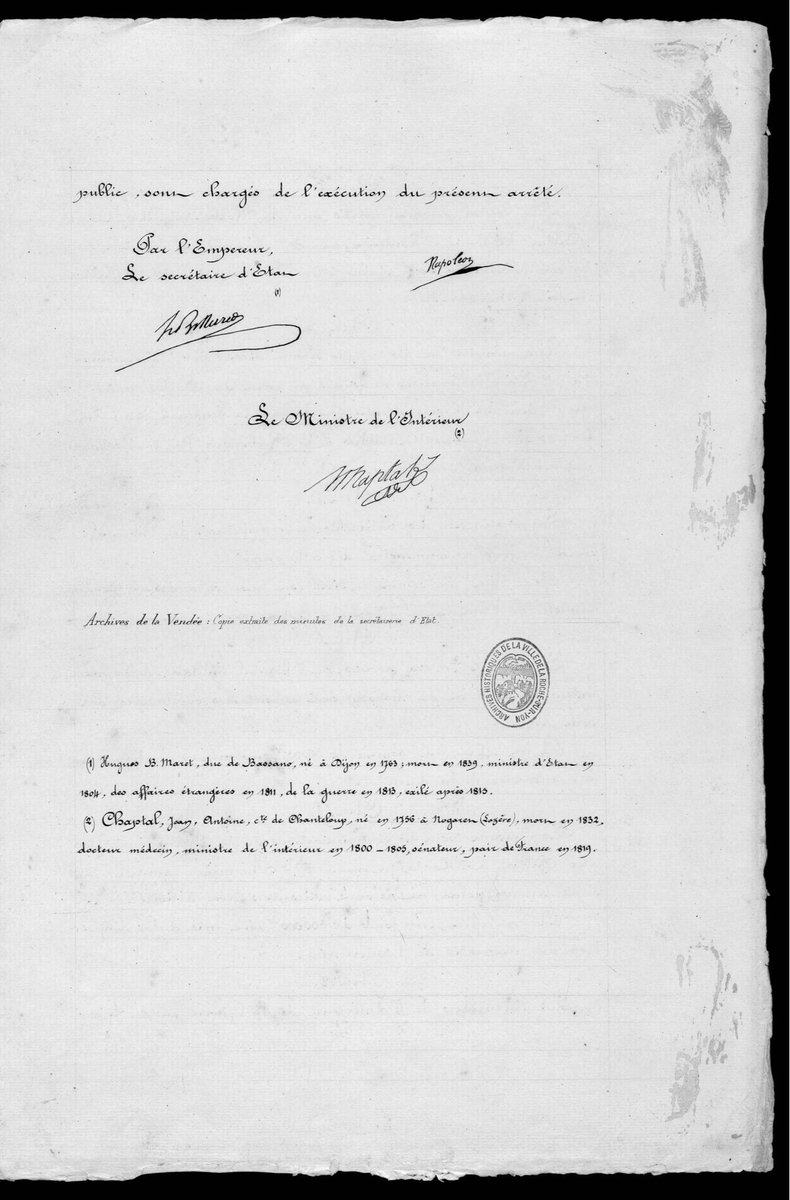 public, sont chargés de l'exécution du présent arrêté.
Par l'Empereur,
Le secrétaire d'Etat
(1)
Napoleon
Le Ministre de l'Intérieur
(2)
Chaptal
Archives de la Vendée : Copie extraite des minutes de la secrétairerie d'Etat.
ARCHIVES HISTORIQUES DE LA VILLE DE LA ROCHE-SUR-YON
(1) Hugues B. Maret, duc de Bassano, né à Dijon en 1763 ; mort en 1839, ministre d'Etat en
1804, des affaires étrangères en 1811, de la guerre en 1813, exilé après 1815.
(2) Chaptal, Jean, Antoine, cte de Chanteloup, né en 1756 à Nogaret (Lozère), mort en 1832,
docteur médecin, ministre de l'intérieur en 1800 - 1805, sénateur, pair de France en 1819.